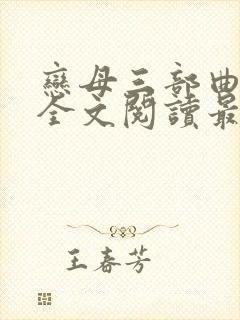 戀母三部曲
全文閱讀最
王春芳